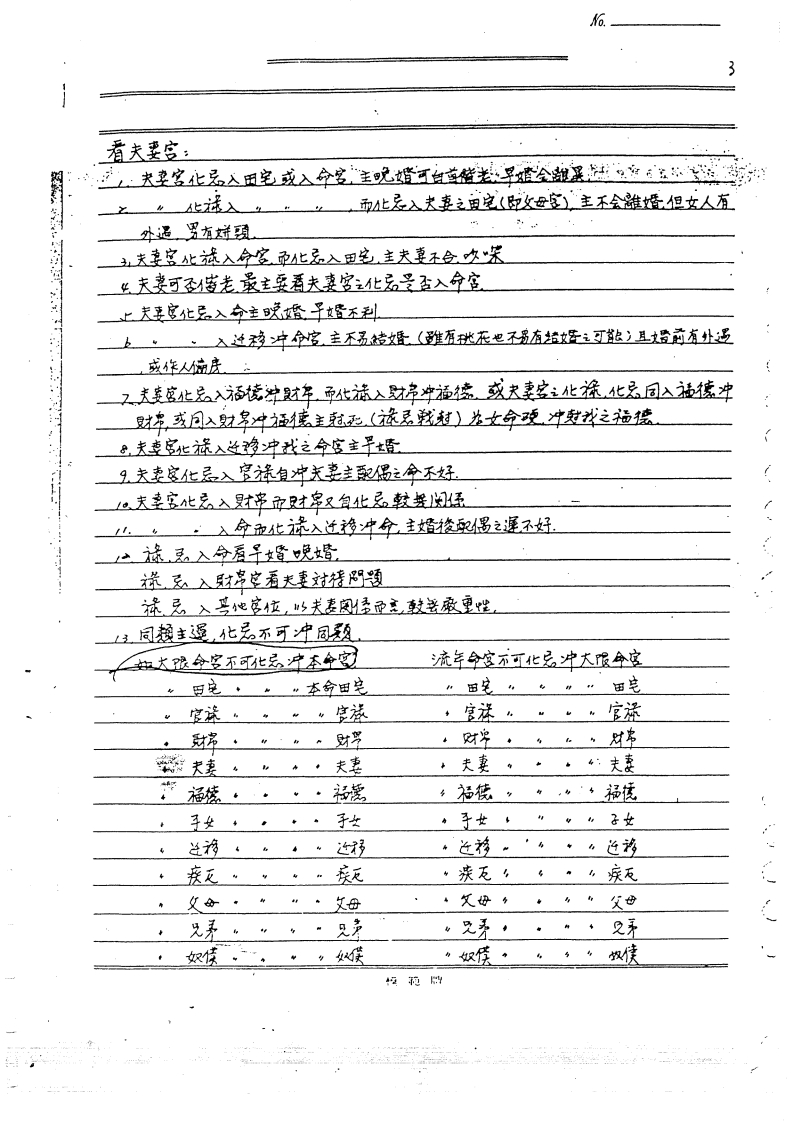 No.
3
看夫妻宮：
1. 夫妻宮化忌入田宅或入命宮，主晚婚可白首偕老，早婚会離異.
2. 〃 化祿入 〃 〃 〃 ，而化忌入夫妻之田宅(即父母宮)，主不会離婚，但女人有
外遇，男有姘頭.
3. 夫妻宮化祿入命宮，而化忌入田宅，主夫妻不合，吵
4. 夫妻可否偕老，最主要看夫妻宮之化忌是否入命宮.
5. 夫妻宮化忌入命主晚婚，早婚不利.
6. 〃 〃 入迁移冲命宮，主不易結婚.(雖有桃花也不易有結婚之可能)且婚前有外遇
，或作人偏房.
7. 夫妻宮化忌入福德冲財帛，而化祿入財帛冲福德，或夫妻宮之化祿，化忌同入福德冲
財帛，或同入財帛冲福德主尅死，(祿忌戰尅)若女命硬，冲尅我之福德.
8. 夫妻宮化祿入迁移冲我之命宮主早婚.
9. 夫妻宮化忌入官祿自冲夫妻主配偶之命不好.
10. 夫妻宮化忌入財帛而財帛又自化忌較無関係.
11. 〃 〃 入命而化祿入迁移冲命，主婚後配偶之運不好.
12. 祿.忌入命看早婚，晚婚.
祿.忌入財帛宮看夫妻对待問題
祿.忌入其他宮位，以夫妻関係而言，較無嚴重性.
13. 同類主逼，化忌不可冲同類.
如大限命宮不可化忌冲本命宮 流年命宮不可化忌冲大限命宮
〃 田宅 〃 〃 〃 本命田宅 〃 田宅 〃 〃 〃 〃 田宅
〃 官祿 〃 〃 〃 〃 官祿 〃 官祿 〃 〃 〃 〃 官祿
〃 財帛 〃 〃 〃 〃 財帛 〃 財帛 〃 〃 〃 〃 財帛
〃 夫妻 〃 〃 〃 〃 夫妻 〃 夫妻 〃 〃 〃 〃 夫妻
〃 福德 〃 〃 〃 〃 福德 〃 福德 〃 〃 〃 〃 福德
〃 子女 〃 〃 〃 〃 子女 〃 子女 〃 〃 〃 〃 子女
〃 迁移 〃 〃 〃 〃 迁移 〃 迁移 〃 〃 〃 〃 迁移
〃 疾厄 〃 〃 〃 〃 疾厄 〃 疾厄 〃 〃 〃 〃 疾厄
〃 父母 〃 〃 〃 〃 父母 〃 父母 〃 〃 〃 〃 父母
〃 兄弟 〃 〃 〃 〃 兄弟 〃 兄弟 〃 〃 〃 〃 兄弟
〃 奴僕 〃 〃 〃 〃 奴僕 〃 奴僕 〃 〃 〃 〃 奴僕
模範牌